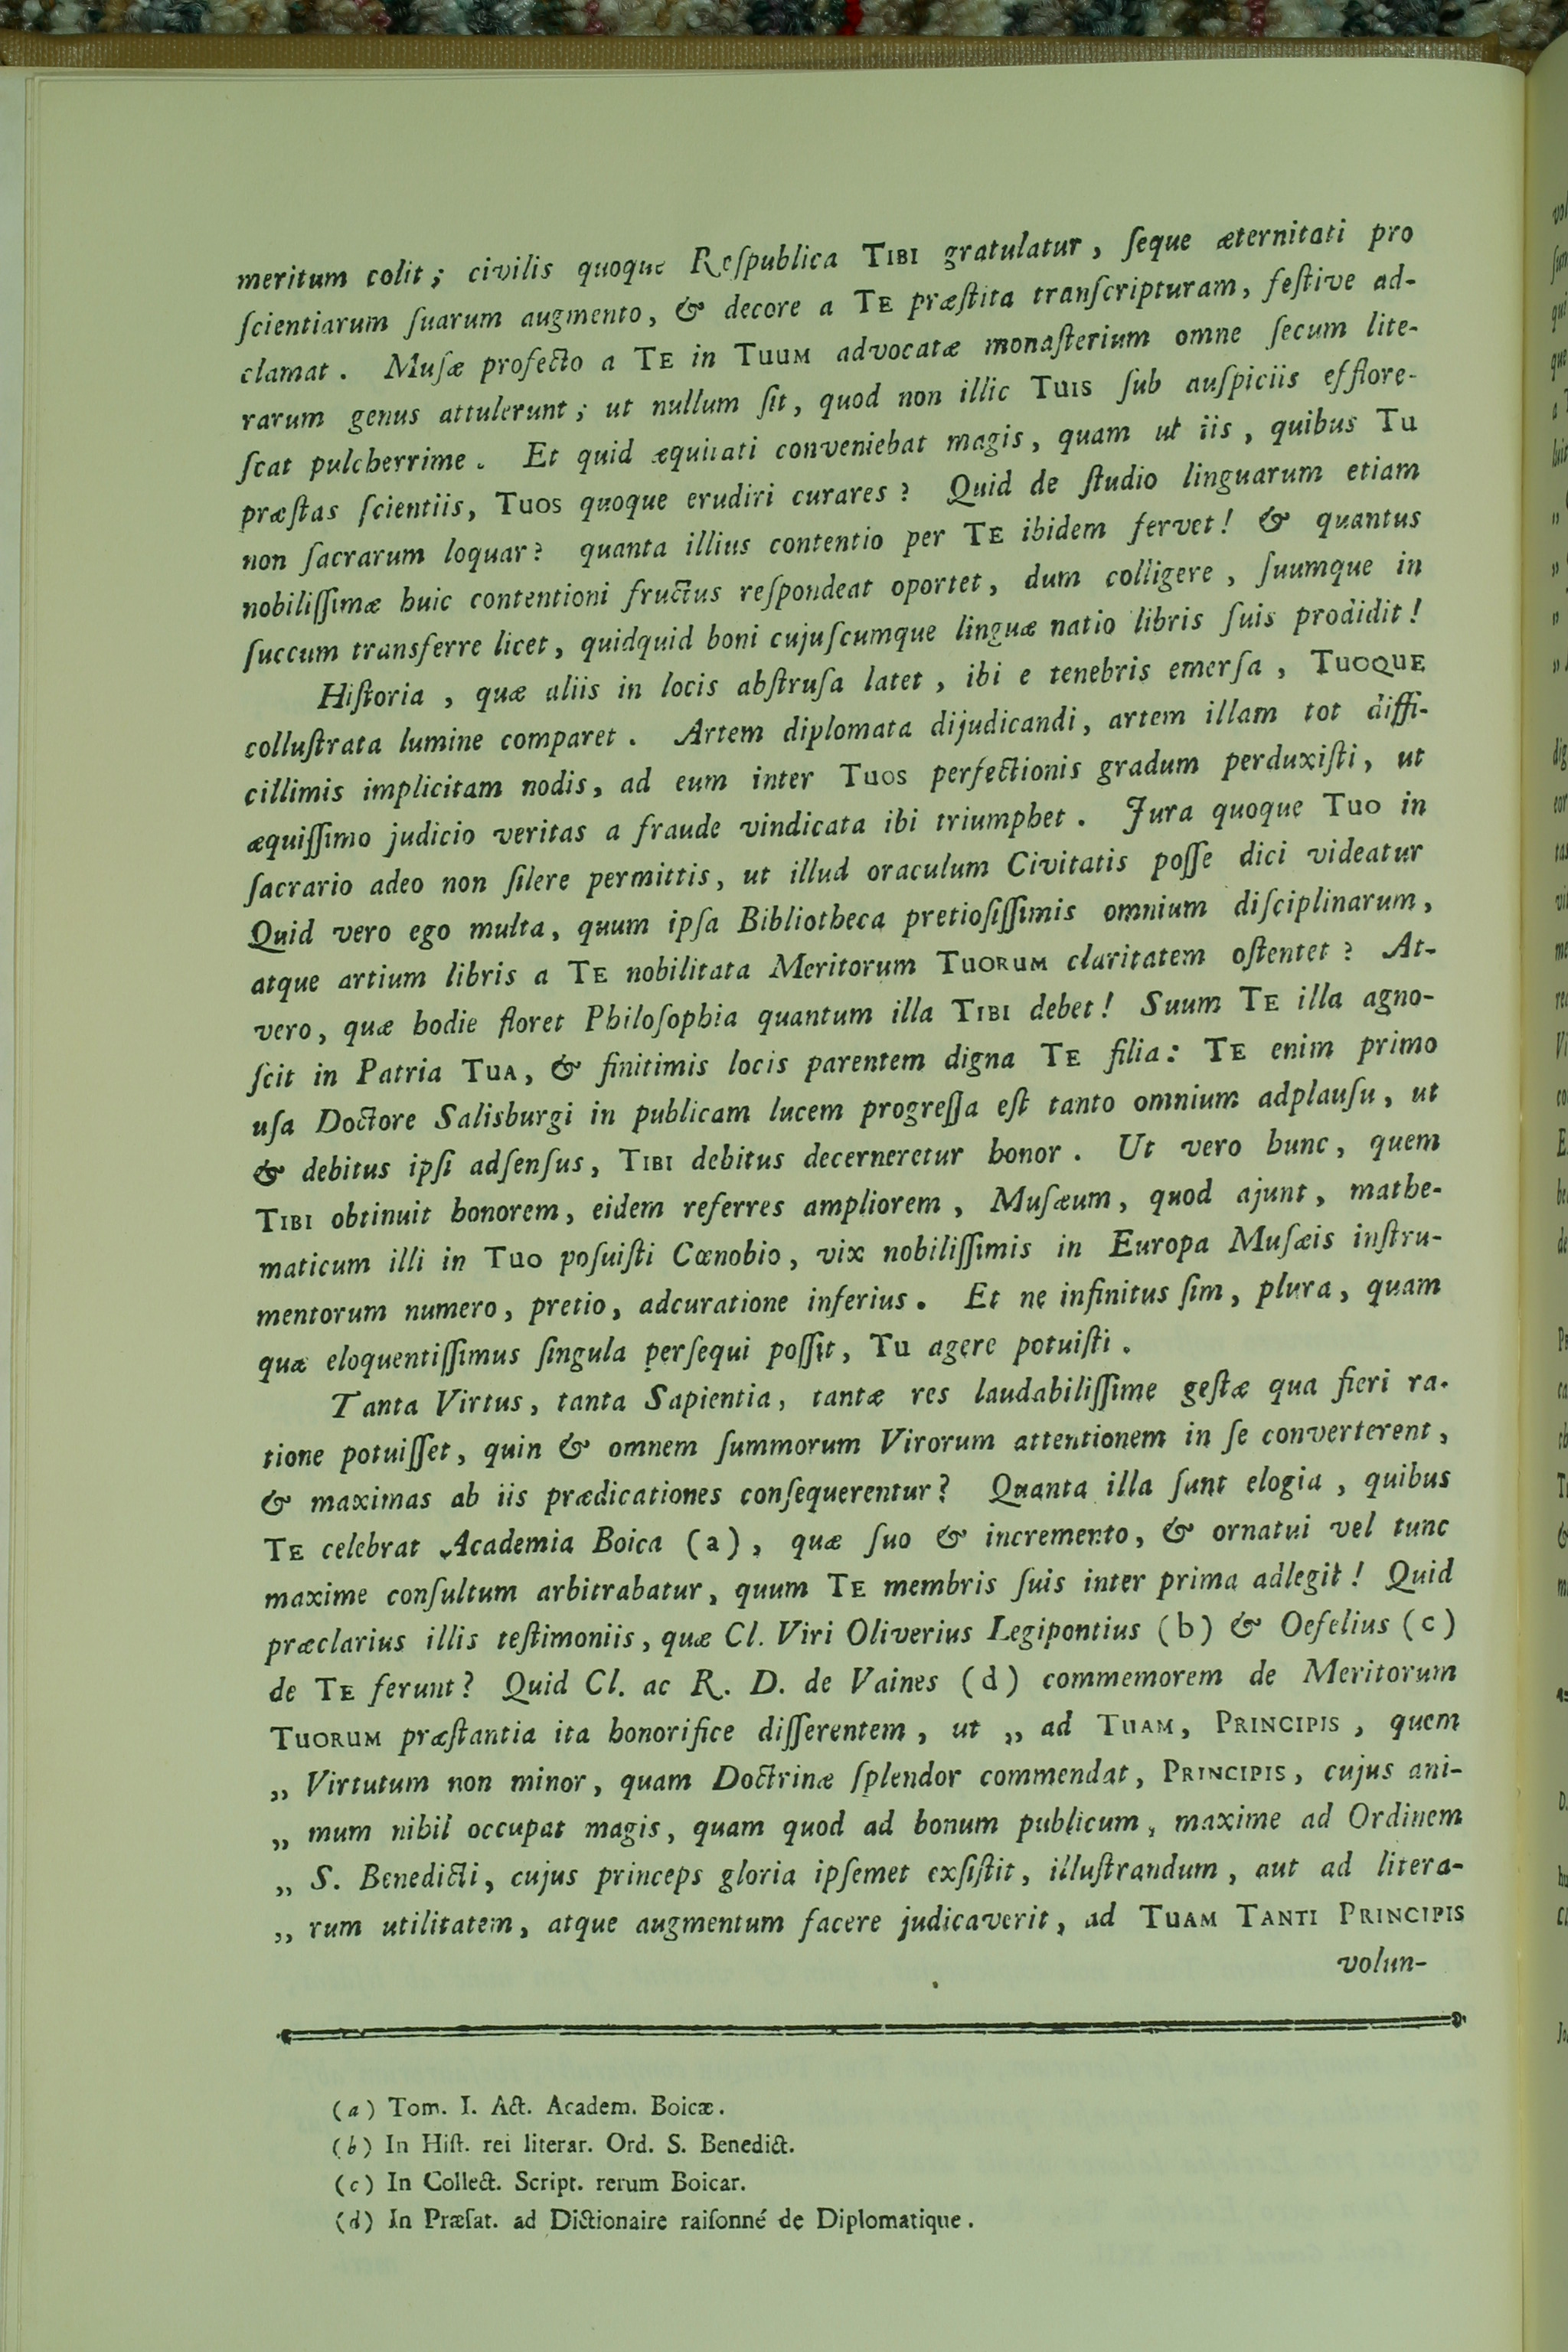 meritum colit; civilis quoque Reſpublica TIBI gratulatur, ſeque æternitati pro
ſcientiarum ſuarum augmento, & decore a TE præſtita tranſcripturam, feſtive ad-
clamat. Muſæ profecto a TE in TUUM advocatæ monaſterium omne ſecum lite-
rarum genus attulerunt; ut nullum ſit, quod non illic TUIS ſub auſpiciis efflore-
ſcat pulcherrime. Et quid æquitati conveniebat magis, quam ut iis, quibus TU
præſtas ſcientiis, TUOS quoque erudiri curares? Quid de ſtudio linguarum etiam
non ſacrarum loquar? quanta illius contentio per TE ibidem fervet! & quantus
nobiliſſimæ huic contentioni fructus reſpondeat oportet, dum colligere, ſuumque in
ſuccum transferre licet, quidquid boni cujuſcumque linguæ natio libris ſuis prodidit!
Hiſtoria, quæ aliis in locis abſtruſa latet, ibi e tenebris emerſa, TUOQUE
colluſtrata lumine comparet. Artem diplomata dijudicandi, artem illam tot diffi-
cillimis implicitam nodis, ad eum inter TUOS perfectionis gradum perduxiſti, ut
æquiſſimo judicio veritas a fraude vindicata ibi triumphet. Jura quoque TUO in
ſacrario adeo non ſilere permittis, ut illud oraculum Civitatis poſſe dici videatur
Quid vero ego multa, quum ipſa Bibliotheca pretioſiſſimis omnium diſciplinarum,
atque artium libris a TE nobilitata Meritorum TUORUM claritatem oſtentet? At-
vero, quæ hodie floret Philoſophia quantum illa TIBI debet! Suum TE illa agno-
ſcit in Patria TUA, & finitimis locis parentem digna TE filia: TE enim primo
uſa Doctore Salisburgi in publicam lucem progreſſa eſt tanto omnium adplauſu, ut
& debitus ipſi adſenſus, TIBI debitus decerneretur honor. Ut vero hunc, quem
TIBI obtinuit honorem, eidem referres ampliorem, Muſæum, quod ajunt, mathe-
maticum illi in TUO poſuiſti Cœnobio, vix nobiliſſimis in Europa Muſæis inſtru-
mentorum numero, pretio, adcuratione inferius. Et ne infinitus ſim, plura, quam
quæ eloquentiſſimus ſingula perſequi poſſit, TU agere potuiſti.
Tanta Virtus, tanta Sapientia, tantæ res laudabiliſſime geſtæ qua fieri ra-
tione potuiſſet, quin & omnem ſummorum Virorum attentionem in ſe converterent,
& maximas ab iis prædicationes conſequerentur? Quanta illa ſunt elogia, quibus
TE celebrat Academia Boica (a), quæ ſuo & incremento, & ornatui vel tunc
maxime conſultum arbitrabatur, quum TE membris ſuis inter prima adlegit! Quid
præclarius illis teſtimoniis, quæ Cl. Viri Oliverius Legipontius (b) & Oefelius (c)
de TE ferunt? Quid Cl. ac R. D. de Vaines (d) commemorem de Meritorum
TUORUM præſtantia ita honorifice diſſerentem, ut „ ad TUAM, PRINCIPIS, quem
„ Virtutum non minor, quam Doctrinæ ſplendor commendat, PRINCIPIS, cujus ani-
„ mum nihil occupat magis, quam quod ad bonum publicum, maxime ad Ordinem
„ S. Benedicti, cujus princeps gloria ipſemet exſiſtit, illuſtrandum, aut ad litera-
„ rum utilitatem, atque augmentum facere judicaverit, ad TUAM TANTI PRINCIPIS
volun-
(a) Tom. I. Act. Academ. Boicæ.
(b) In Hiſt. rei literar. Ord. S. Benedict.
(c) In Collect. Script. rerum Boicar.
(d) In Præfat. ad Dictionaire raiſonné de Diplomatique.